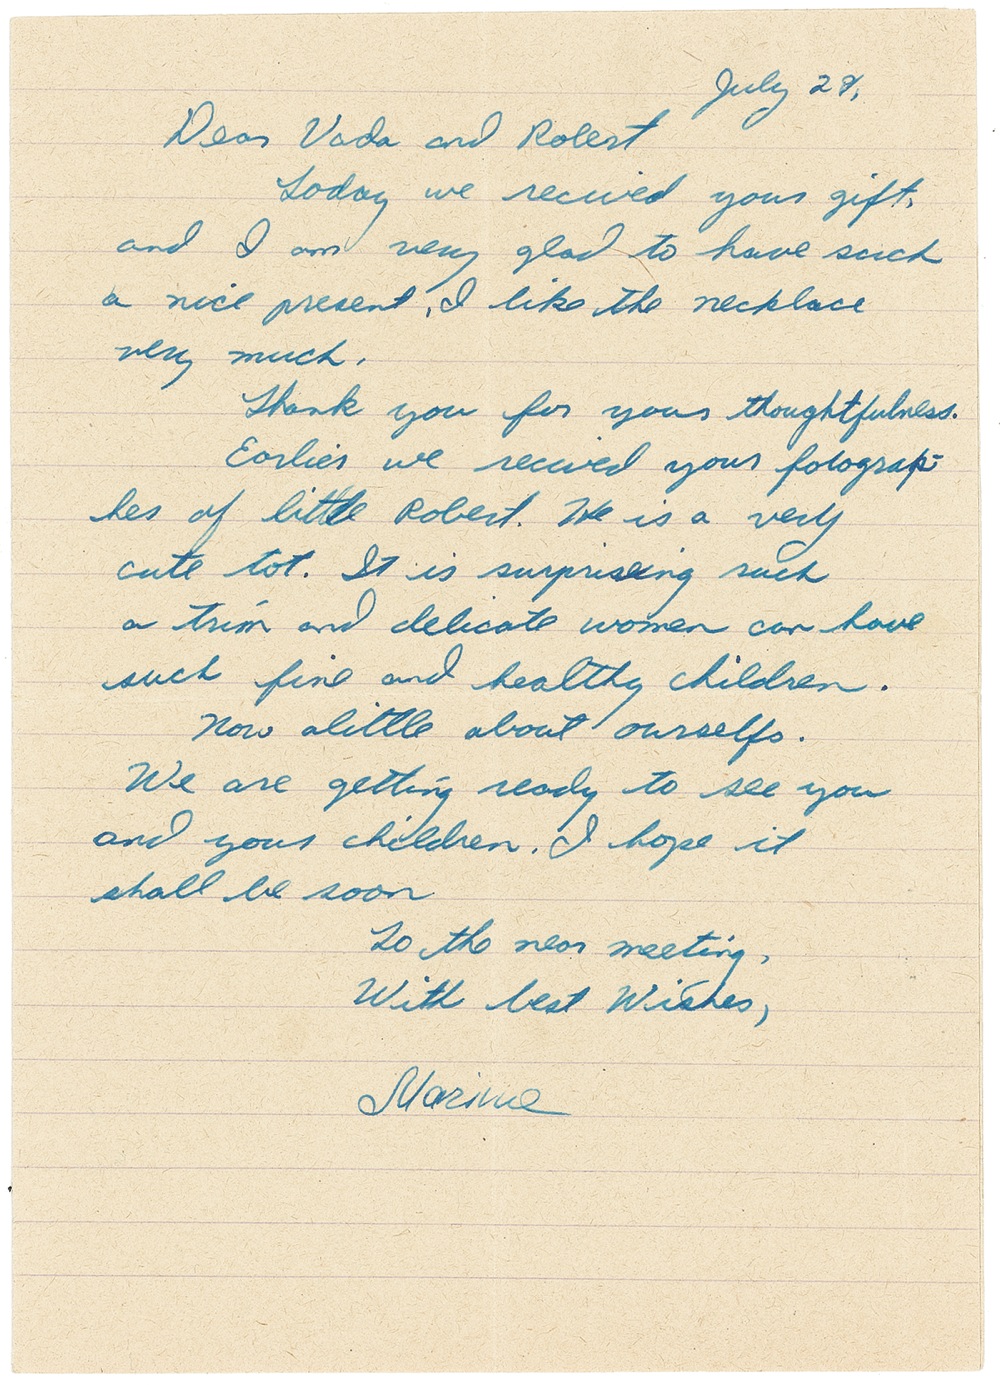 July 28,
Dear Vada and Robert
Today we recived your gift,
and I am very glad to have such
a nice present, I like the necklace
very much.
Thank you for your thoughtfulness.
Earlier we recived your fotograp-
hes of little Robert. He is a very
cute tot. It is surprising such
a trim and delicate women can have
such fine and healthy children.
Now alittle about ourselfs.
We are getting ready to see you
and your children. I hope it
shall be soon
To the near meeting,
With best Wishes,
Marina